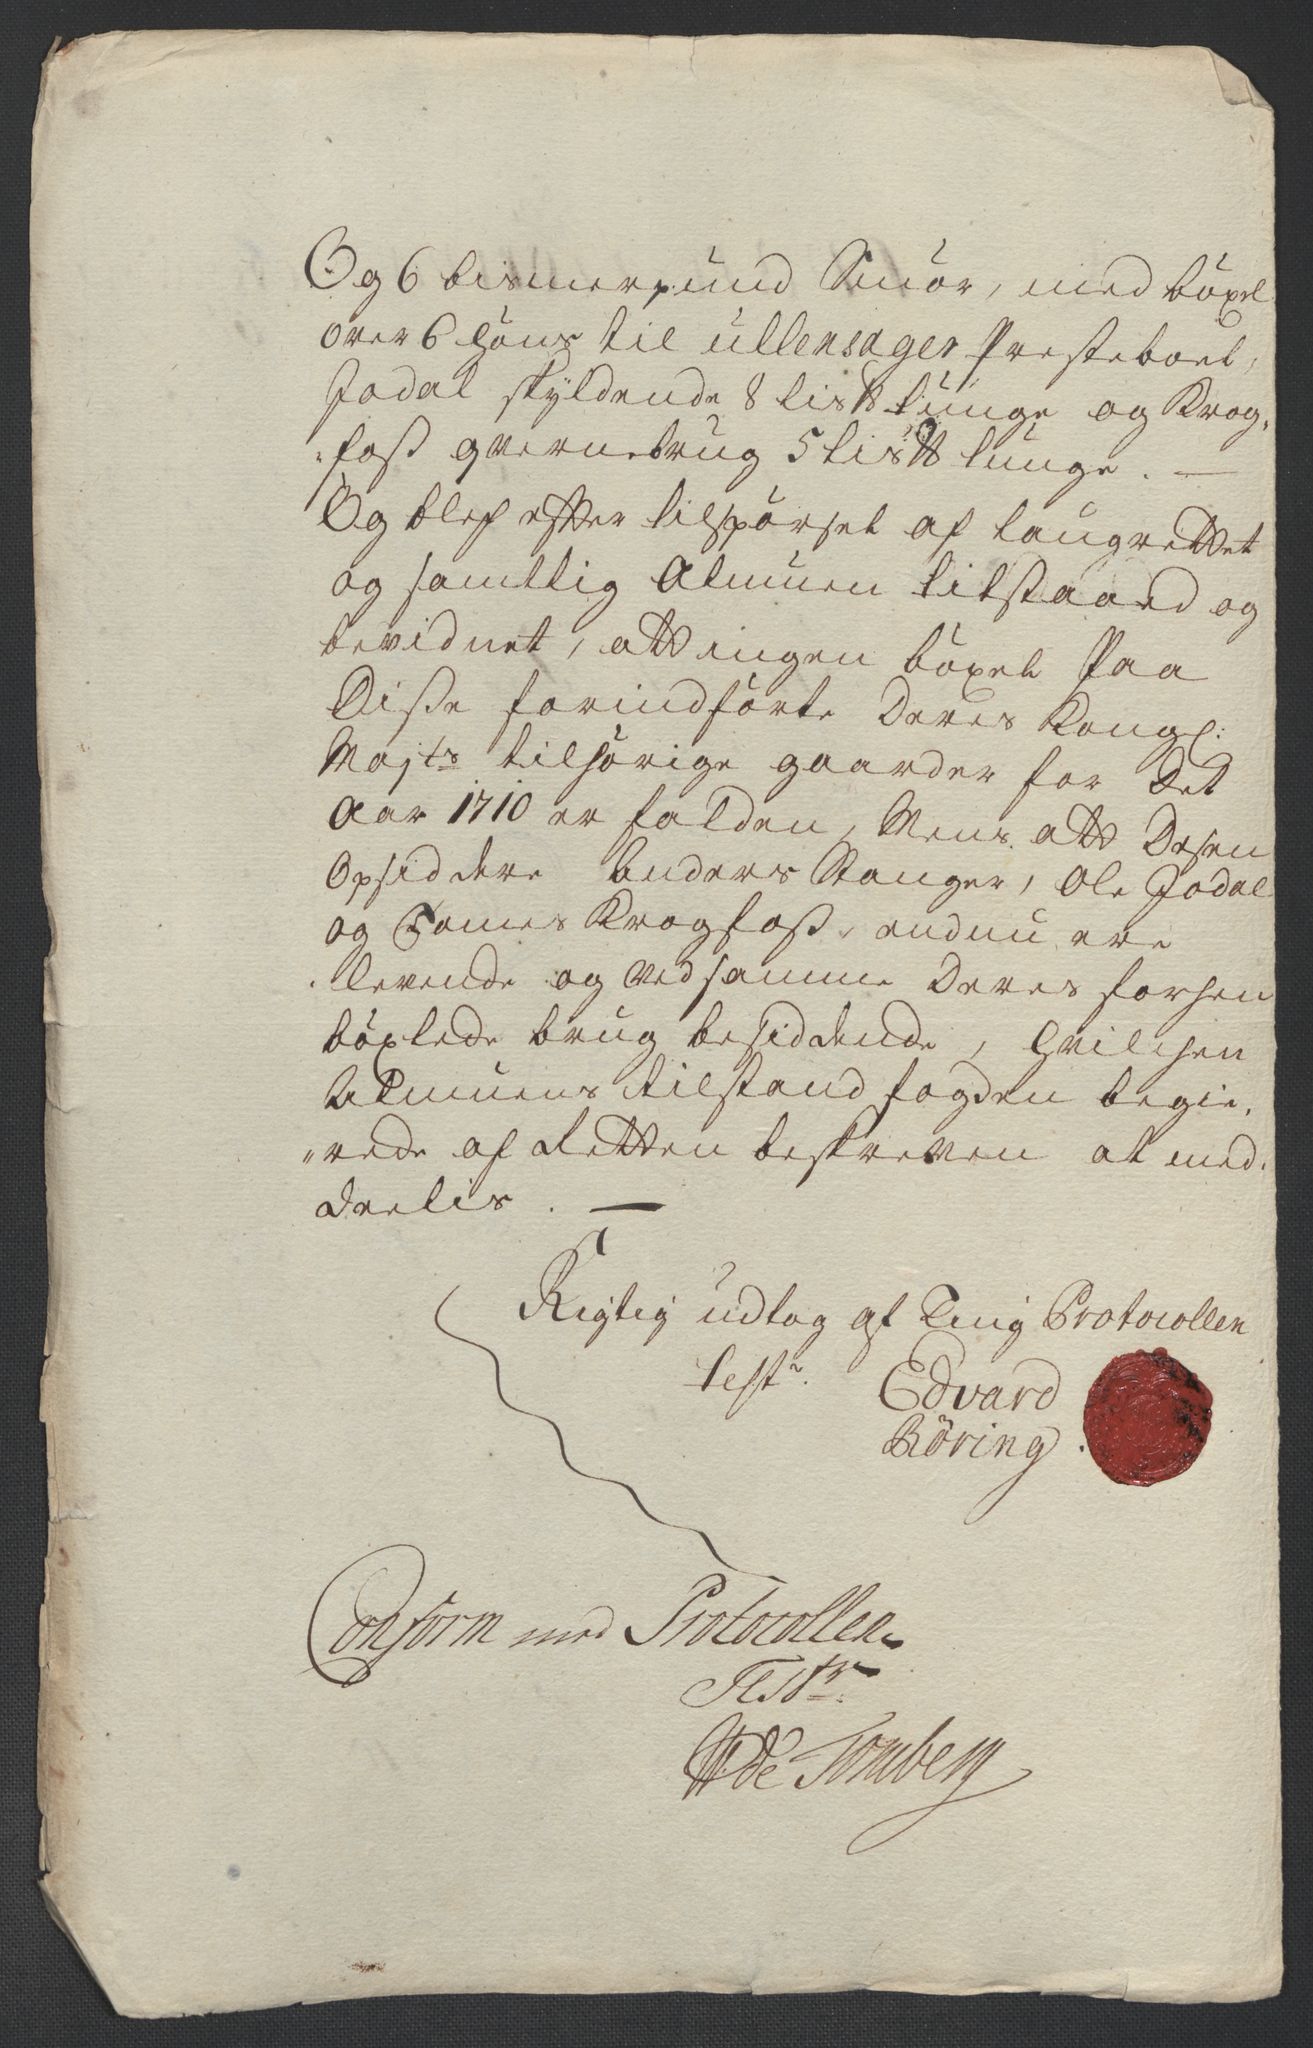 Og 6 bismerpund Smör, med böxel
over 6 Höns til Ullensager Presteboel,
Jodal skyldende 8 lis℔ tunge og Krog-
foss qvernebrug 5 lis℔ tunge. —
Og blef efter tilspörsel af laugrettet
og samtlig Almuen tilstaaed og
bevidnet, att ingen böxel Paa
Disse forindförte Deris Kongl:
Majts tilhörige gaarder for Det
Aar 1710 er falden, Mens att Desen
Opsiddere Anders Stanger, Ole Jodal
og Tomes Krogfoss, endnu ere
levende og ved samme Deres forhen
böxlede brug besiddende, hvilchen
Almuens tilstand fogden begie-
rede af Retten beskreven at med-
deelis. —
Rigtig udtog af Ting Protocollen
Test. Edvard
Röring
Conform med Protocollen
Testr.
de Tonsberg